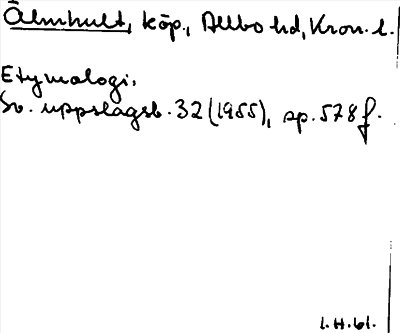 Älmhult, köp., Allbo hd, Kron. l.
Etymologi.
Sv. uppslagsb. 32 (1955), sp. 578 f.
I.H.61.